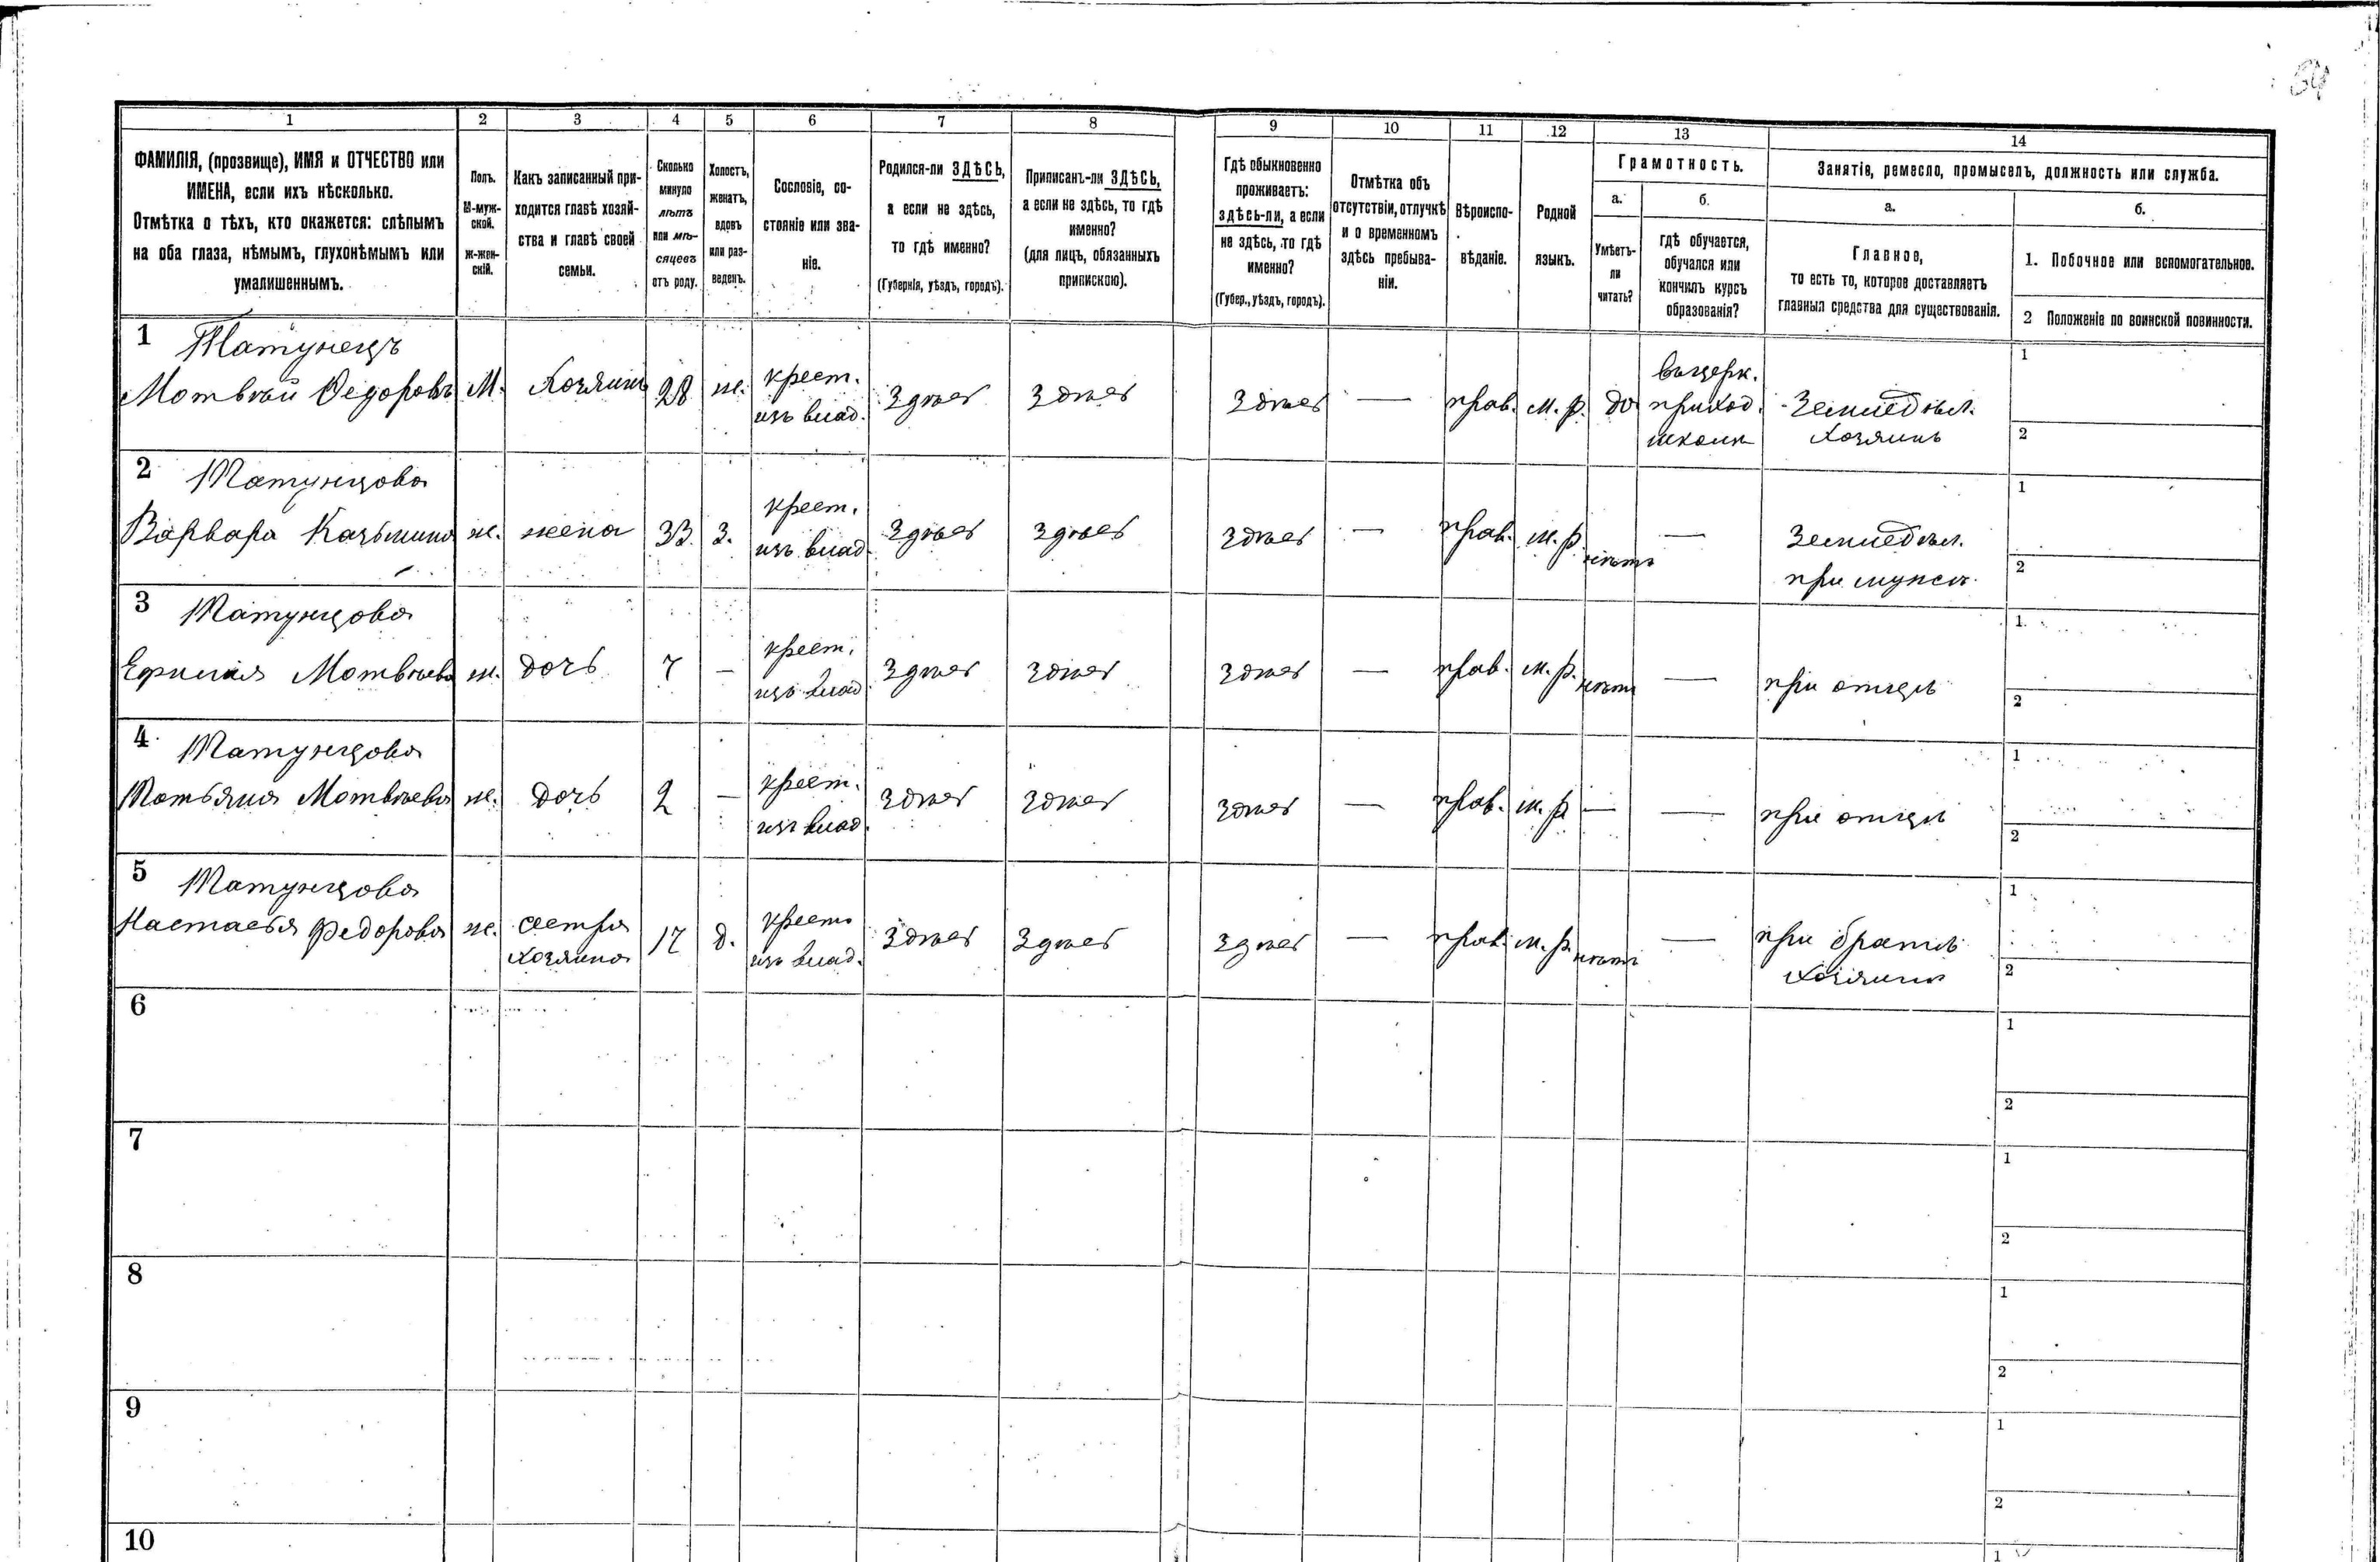 54
1 2 3 4 5 6 7 8 9 10 11 12 13 14
ФАМИЛІЯ, (прозвище), ИМЯ и ОТЧЕСТВО или
ИМЕНА, если ихъ нѣсколько.
Отмѣтка о тѣхъ, кто окажется: слѣпымъ
на оба глаза, нѣмымъ, глухонѣмымъ или
умалишеннымъ.
Полъ.
М-муж-
ской.
Ж-жен-
скій.
Какъ записанный при-
ходится главѣ хозяй-
ства и главѣ своей
семьи.
Сколько
минуло
лѣтъ
или мѣ-
сяцевъ
отъ роду.
Холостъ,
женатъ,
вдовъ
или раз-
веденъ.
Сословіе, со-
стояніе или зва-
ніе.
Родился-ли ЗДѢСЬ,
а если не здѣсь,
то гдѣ именно?
(Губернія, уѣздъ, городъ).
Приписанъ-ли ЗДѢСЬ,
а если не здѣсь, то гдѣ
именно?
(для лицъ, обязанныхъ
припискою).
Гдѣ обыкновенно
проживаетъ:
здѣсь-ли, а если
не здѣсь, то гдѣ
именно?
(Губер., уѣздъ, городъ).
Отмѣтка объ
отсутствіи, отлучкѣ
и о временномъ
здѣсь пребыва-
ніи.
Вѣроиспо-
вѣданіе.
Родной
языкъ.
Грамотность.
а.
Умѣетъ-
ли
читать?
б.
гдѣ обучается,
обучался или
кончилъ курсъ
образованія?
Занятіе, ремесло, промыселъ, должность или служба.
а.
Главное,
то есть то, которое доставляетъ
главныя средства для существованія.
б.
1. Побочное или вспомогательное.
2 Положеніе по воинской повинности.
1 Татунецъ
Мотвѣй Ѳедоровъ М. Хозяинъ 28 ж. крест. изъ влад. Здѣсь Здѣсь Здѣсь — прав. м. р. да въ церк. приход. школѣ Земледѣл. хозяинъ 1 2
2 Татунцова
Варвара Казьмина ж. жена 33 З. крест. изъ влад. Здѣсь здѣсь здѣсь — прав. м. р. нѣтъ — Земледѣл. при мужѣ 1 2
3 Татунцова
Ефимія Мотвѣева ж. дочь 7 — крест. изъ влад. Здѣсь здѣсь здѣсь — прав. м. р. нѣтъ — при отцѣ 1 2
4 Татунцова
Татьяна Мотвѣева ж. дочь 2 — крест. изъ влад. здѣсь здѣсь здѣсь — прав. м. р — — при отцѣ 1 2
5 Татунцова
Настасья Федорова ж. сестра хозяина 17 д. крест. изъ влад. здѣсь Здѣсь здѣсь — прав. м. р. нѣтъ — при братѣ хозяинѣ 1 2
6 1 2
7 1 2
8 1 2
9 1 2
10 1